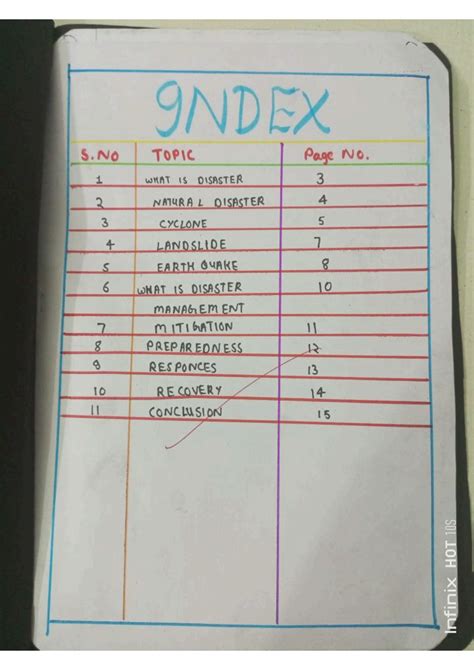 INDEX
S.NO TOPIC Page No.
1 WHAT IS DISASTER 3
2 NATURAL DISASTER 4
3 CYCLONE 5
4 LANDSLIDE 7
5 EARTH QUAKE 8
6 WHAT IS DISASTER 10
MANAGEMENT
7 MITIGATION 11
8 PREPAREDNESS 12
9 RESPONCES 13
10 RECOVERY 14
11 CONCLUSION 15
Infinix HOT 10S